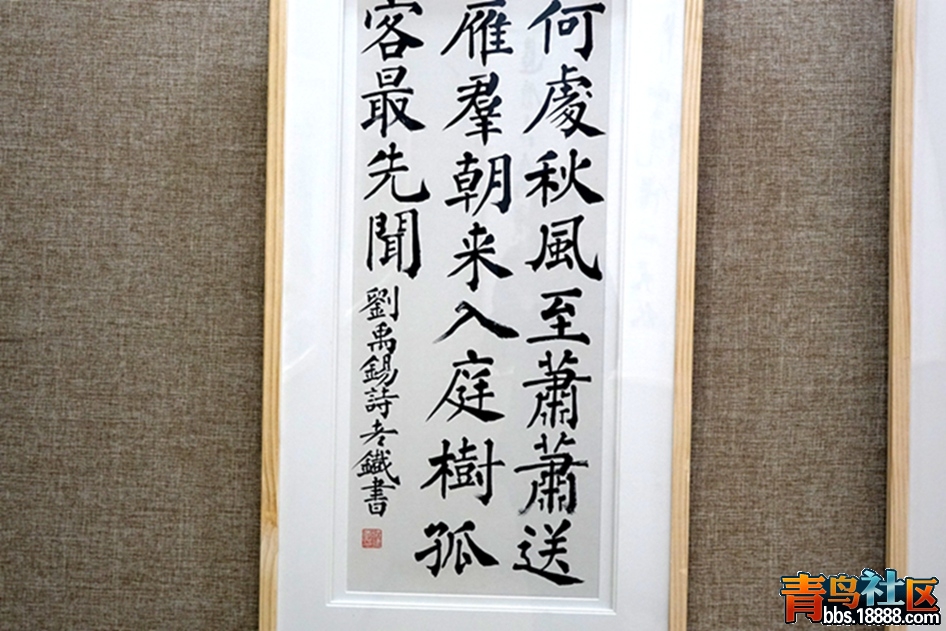 何處秋風至蕭蕭送
雁羣朝来入庭樹孤
客最先聞
劉禹錫詩老鐵書
青鸟社区
bbs.18888.com